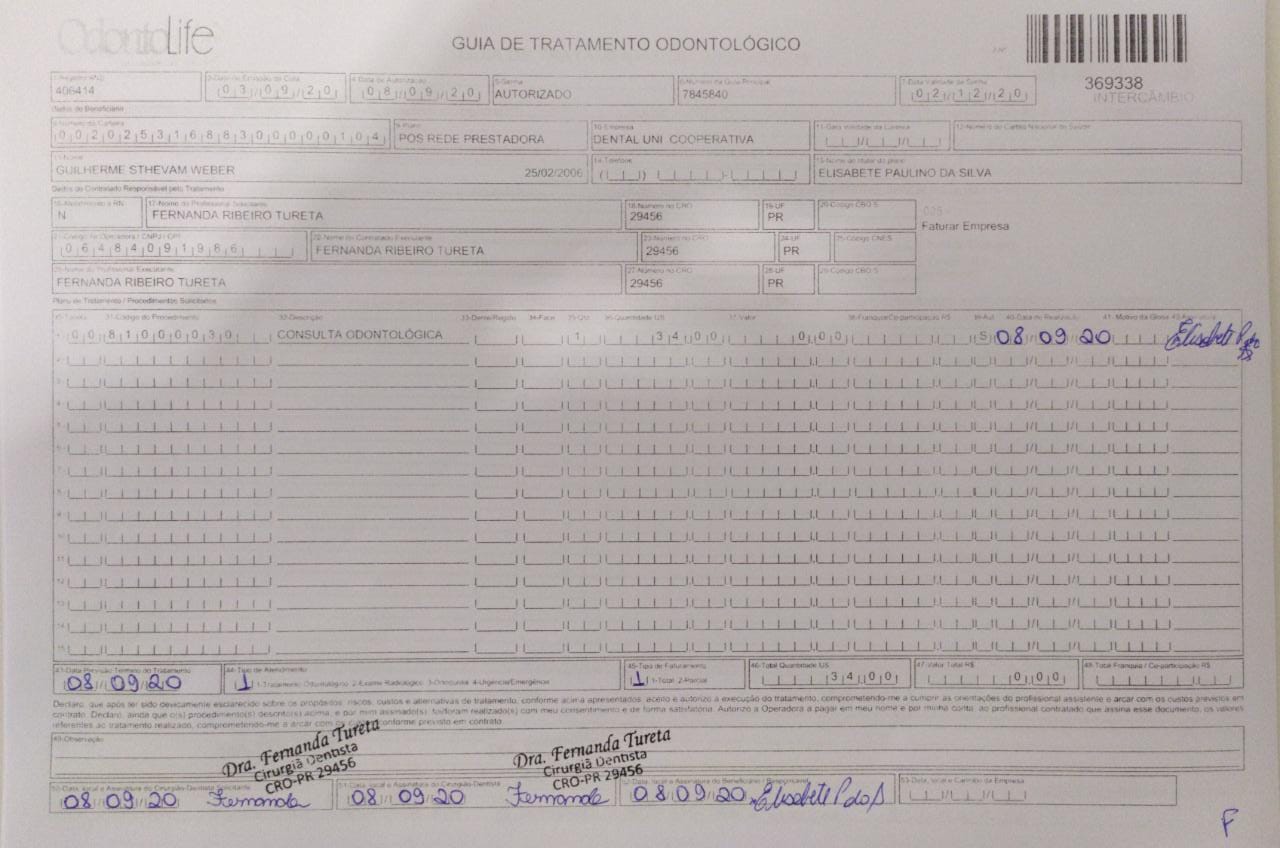 OdontoLife
GUIA DE TRATAMENTO ODONTOLÓGICO
369338
INTERCÂMBIO
1-Registro ANS 406414
03/09/20
4-Data de Autorização 08/09/20
5-Senha AUTORIZADO
6-Número da Guia Principal 7845840
7-Data Validade da Senha 02/12/20
Dados do Beneficiário
8-Número da Carteira 00202531688300000104
9-Plano POS REDE PRESTADORA
10-Empresa DENTAL UNI COOPERATIVA
12-Número do Cartão Nacional de Saúde
13-Nome GUILHERME STHEVAM WEBER 25/02/2006
14-Telefone
15-Nome do titular do plano ELISABETE PAULINO DA SILVA
Dados do Contratado Responsável pelo Tratamento
16-Atendimento a RN N
17-Nome do Profissional Solicitante FERNANDA RIBEIRO TURETA
18-Número no CRO 29456
19-UF PR
20-Código CBO S
025 -
Faturar Empresa
21-Código na Operadora / CNPJ / CPF 06484091986
22-Nome do Contratado Executante FERNANDA RIBEIRO TURETA
23-Número no CRO 29456
24-UF PR
25-Código CNES
26-Nome do Profissional Executante FERNANDA RIBEIRO TURETA
27-Número no CRO 29456
28-UF PR
29-Código CBO S
Plano de Tratamento / Procedimentos Solicitados
30-Tabela 31-Código do Procedimento 32-Descrição 33-Dente/Região 34-Face 35-Qtd 36-Quantidade US 37-Valor 38-Franquia/Co-participação R$ 39-Aut 40-Data de Realização 41- Motivo da Glosa 42-Assinatura
1- 00 81000030 CONSULTA ODONTOLÓGICA 1 34 00 0 00 S 08 09 20 Elisabete P
2-
3-
4-
5-
6-
7-
8-
9-
10-
11-
12-
13-
14-
15-
43-Data Previsão Término do Tratamento 08/09/20
44-Tipo de Atendimento 1 1-Tratamento Odontológico 2-Exame Radiológico 3-Ortodontia 4-Urgência/Emergência
45-Tipo de Faturamento 1 1-Total 2-Parcial
46-Total Quantidade US 34 00
47-Valor Total R$ 0 00
48-Total Franquia / Co-participação R$
Declaro, que após ter sido devidamente esclarecido sobre os propósitos, riscos, custos e alternativas de tratamento, conforme acima apresentados, aceito e autorizo a execução do tratamento, comprometendo-me a cumprir as orientações do profissional assistente e arcar com os custos previstos em
contrato. Declaro, ainda que o(s) procedimento(s) descrito(s) acima, e por mim assinado(s), foi/foram realizado(s) com meu consentimento e de forma satisfatória. Autorizo a Operadora a pagar em meu nome e por minha conta, ao profissional contratado que assina esse documento, os valores
referentes ao tratamento realizado, comprometendo-me a arcar com os conforme previsto em contrato.
49-Observação
Dra. Fernanda Tureta
Cirurgiã Dentista
CRO-PR 29456
Dra. Fernanda Tureta
Cirurgiã Dentista
CRO-PR 29456
50-Data, local e Assinatura do Cirurgião-Dentista Solicitante 08/09/20 Fernanda
51-Data, local e Assinatura do Cirurgião-Dentista 08/09/20 Fernanda
52-Data, local e Assinatura do Beneficiário / Responsável 08/09/20 Elisabete P da S
53-Data, local e Carimbo da Empresa
F